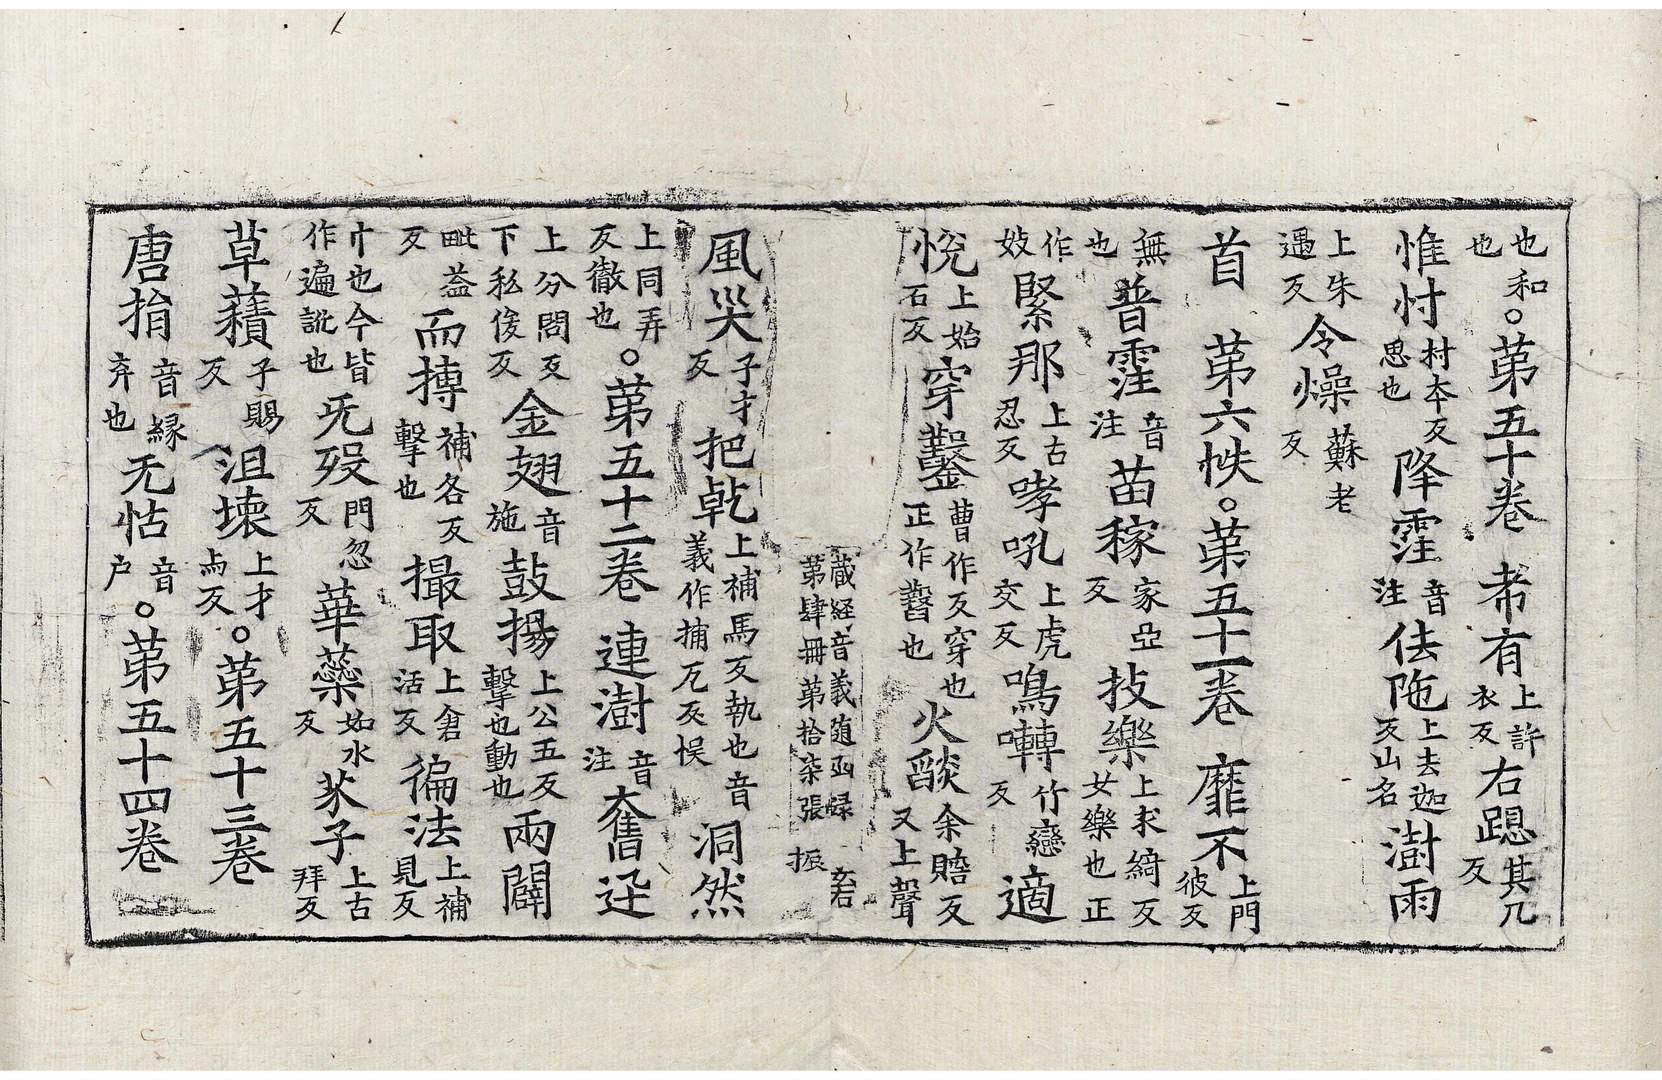 也和也○第五十卷 希有上許衣反右䠒其兀反
惟忖村本反思也降霔音注佉陁上去迦反山名澍雨
上朱遇反令燥蘇老反
首 第六帙○第五十一卷 靡不上門彼反
無也普霔音注苗稼家亞反技樂上求綺反女樂也正
作妓緊那上古忍反哮吼上虎交反鳴囀竹戀反適
悅上始石反穿鑿曹作反穿也正作鑿也火燄余贍反又上聲
藏経音義随函録
第肆冊第拾柒張 振
風災子才反把乾上補馬反執也音義作捕瓦反悮洞然
上同弄反徹也○第五十二卷 連澍音注奮迅
上分問反下私俊反金翅音施鼓揚上公五反擊也動也兩闢
毗益反而搏補各反擊也撮取上倉活反徧法上補見反
忄也今皆作遍訛也旡歿門忽反華蘂如水反苽子上古拜反
草𧂐子賜反沮壞上才与反○第五十三卷
唐捐音緣弃也无怙音户○第五十四卷